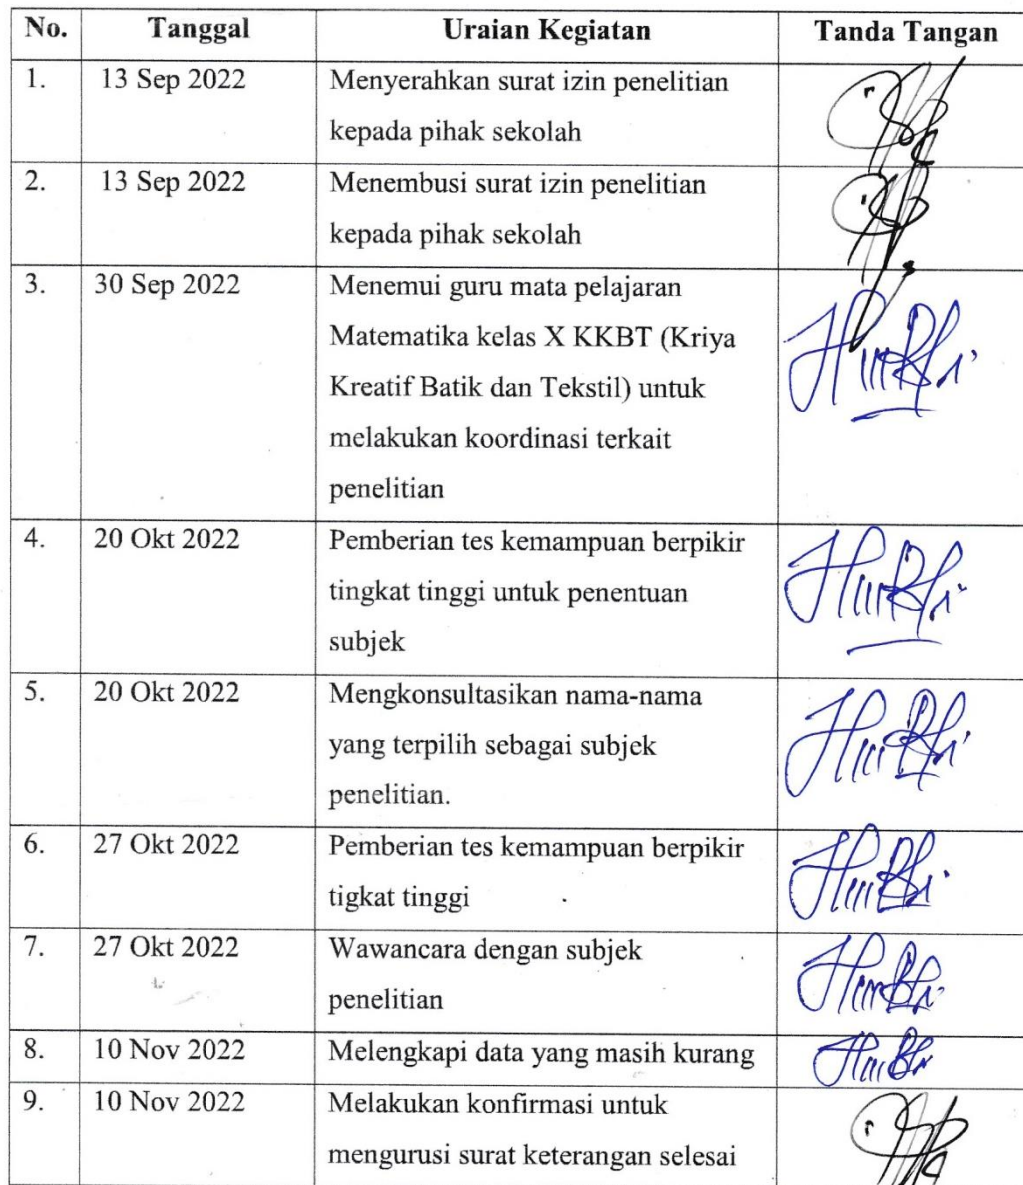 No. Tanggal Uraian Kegiatan Tanda Tangan
1. 13 Sep 2022 Menyerahkan surat izin penelitian
kepada pihak sekolah
2. 13 Sep 2022 Menembusi surat izin penelitian
kepada pihak sekolah
3. 30 Sep 2022 Menemui guru mata pelajaran
Matematika kelas X KKBT (Kriya
Kreatif Batik dan Tekstil) untuk
melakukan koordinasi terkait
penelitian
4. 20 Okt 2022 Pemberian tes kemampuan berpikir
tingkat tinggi untuk penentuan
subjek
5. 20 Okt 2022 Mengkonsultasikan nama-nama
yang terpilih sebagai subjek
penelitian.
6. 27 Okt 2022 Pemberian tes kemampuan berpikir
tigkat tinggi
7. 27 Okt 2022 Wawancara dengan subjek
penelitian
8. 10 Nov 2022 Melengkapi data yang masih kurang
9. 10 Nov 2022 Melakukan konfirmasi untuk
mengurusi surat keterangan selesai